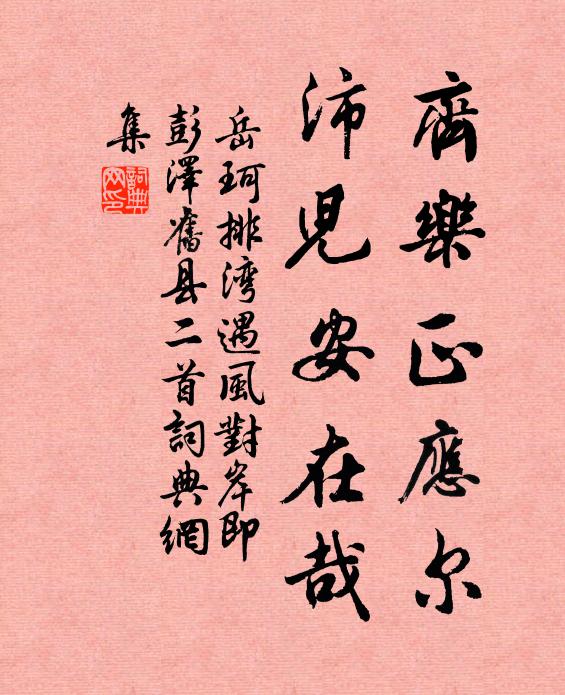 齊樂正應尔
沛兒安在哉
岳珂排湾遇風對岸即
彭澤舊县二首詞典網
集
詞典
网印